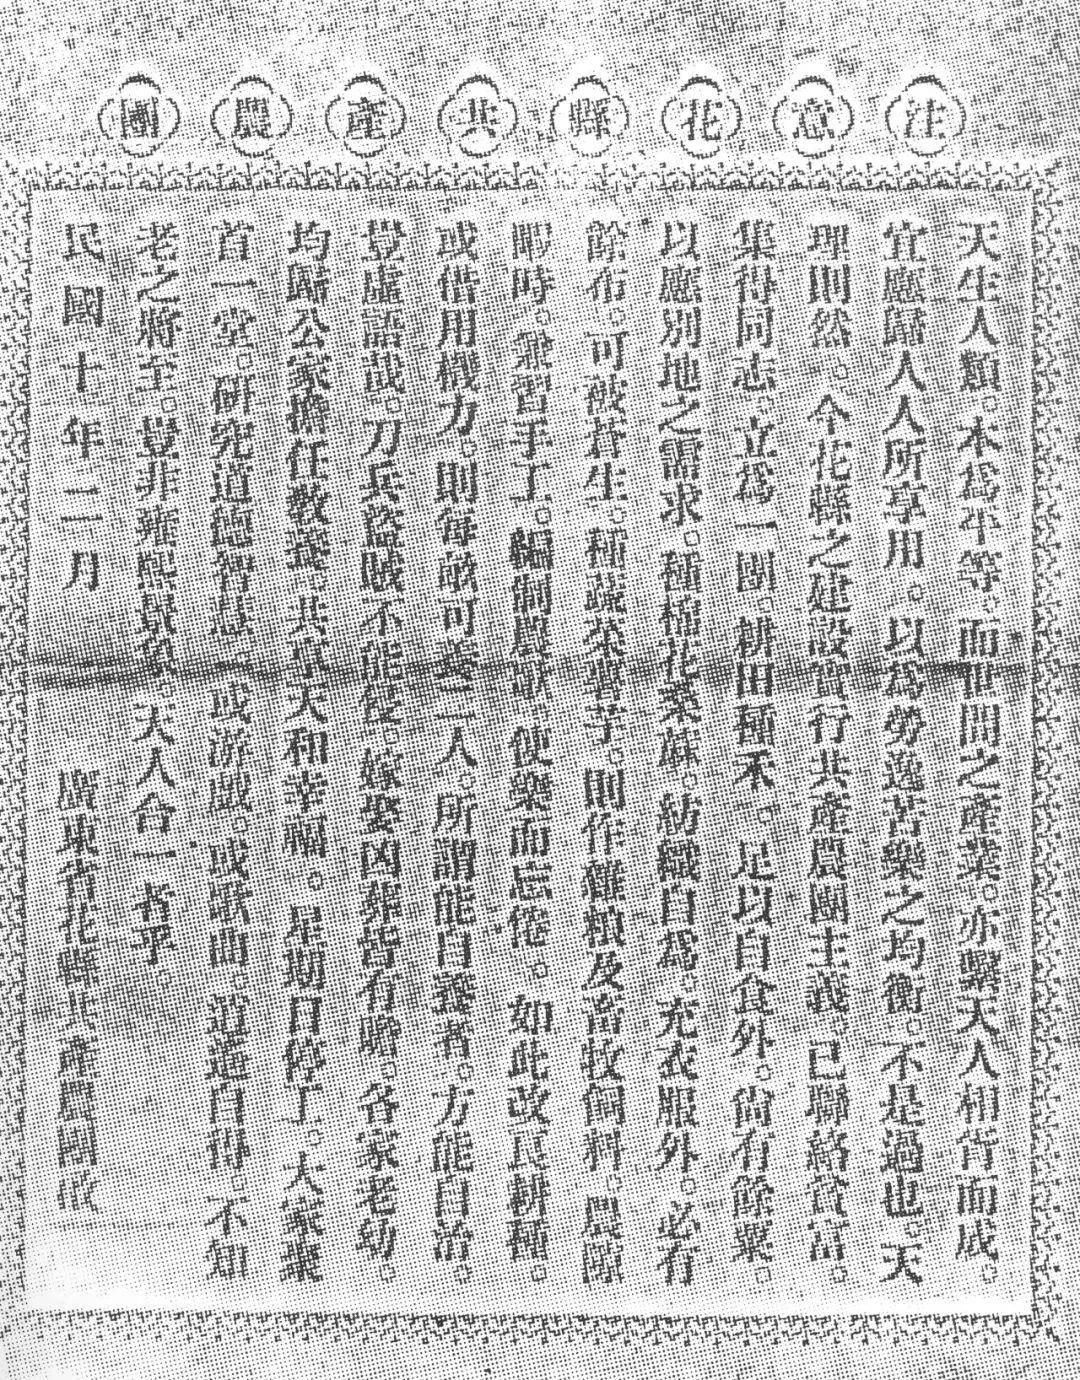 注意花縣共產農團
天生人類。本爲平等。而世間之產業。亦緊天人相背而成。
宜應歸人人所享用。以爲勞逸苦樂之均衡。不是過也。天
理則然。今花縣之建設實行共產農團主義。已聯絡貧富。
集得同志。立爲一團。耕田種禾。足以自食外。尙有餘粟。
以應別地之需求。種棉花桑蔴。紡織自爲。充衣服外。必有
餘布。可被蒼生。種蔬菜薯芋。則作雜粮及畜牧飼料。農隙
暇時。兼習手工。編制農歌。便樂而忘倦。如此改良耕種。
或借用機力。則每畝可養二人。所謂能自養者。方能自治。
豈虛語哉。刀兵盜賊不能侵。嫁娶凶葬皆有贍。各家老幼。
均歸公家擔任敎養。共享天和幸福。星期日停工。大家聚
首一堂。研究道德智慧。或游戲。或歌曲。逍遙自得。不知
老之將至。豈非雍熙景象。天人合一者乎。
民國十年二月 廣東省花縣共產農團啟